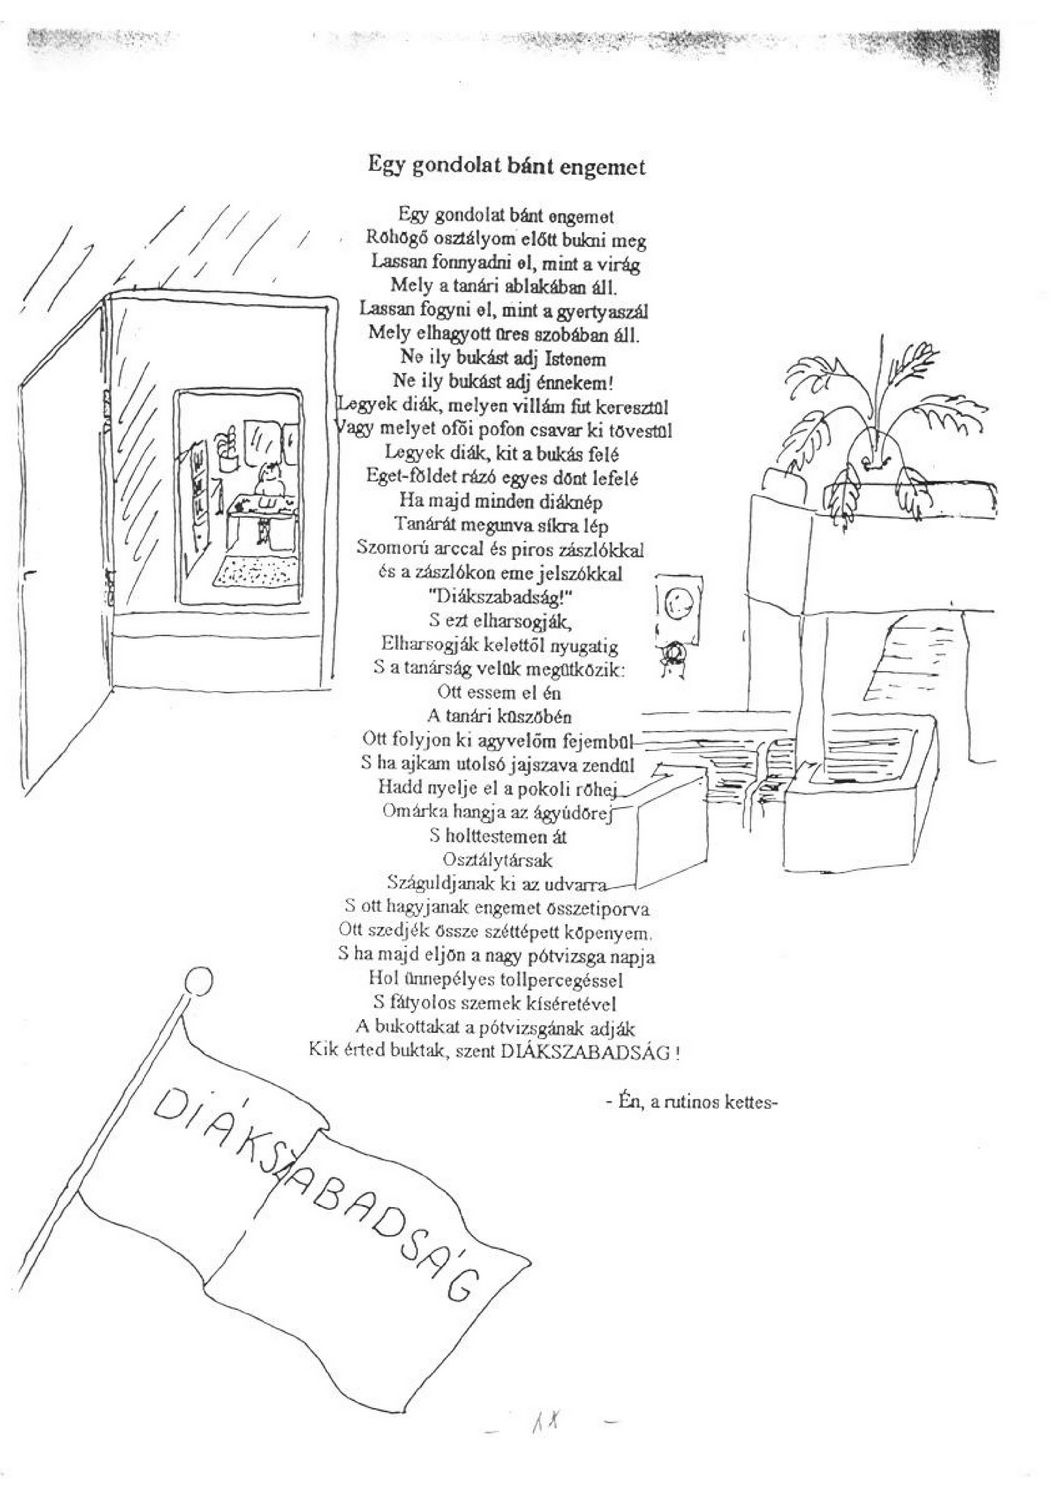 Egy gondolat bánt engemet
Egy gondolat bánt engemet
Röhögő osztályom előtt bukni meg
Lassan fonnyadni el, mint a virág
Mely a tanári ablakában áll.
Lassan fogyni el, mint a gyertyaszál
Mely elhagyott üres szobában áll.
Ne ily bukást adj Istenem
Ne ily bukást adj énnekem!
Legyek diák, melyen villám fut keresztül
Vagy melyet ofői pofon csavar ki tövestül
Legyek diák, kit a bukás felé
Eget-földet rázó egyes dönt lefelé
Ha majd minden diáknép
Tanárát megunva síkra lép
Szomorú arccal és piros zászlókkal
és a zászlókon eme jelszókkal
"Diákszabadság!"
S ezt elharsogják,
Elharsogják kelettől nyugatig
S a tanárság velük megütközik:
Ott essem el én
A tanári küszöbén
Ott folyjon ki agyvelőm fejembül
S ha ajkam utolsó jajszava zendül
Hadd nyelje el a pokoli röhej
Omárka hangja az ágyúdörej
S holttestemen át
Osztálytársak
Száguldjanak ki az udvarra
S ott hagyjanak engemet összetiporva
Ott szedjék össze széttépett köpenyem.
S ha majd eljön a nagy pótvizsga napja
Hol ünnepélyes tollpercegéssel
S fátyolos szemek kíséretével
A bukottakat a pótvizsgának adják
Kik érted buktak, szent DIÁKSZABADSÁG !
- Én, a rutinos kettes-
DIÁKSZABADSÁG